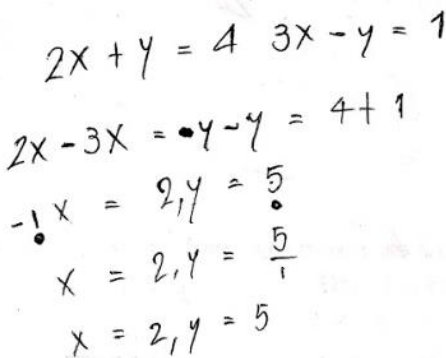 2x + y = 4 3x - y = 1
2x - 3x = y - y = 4 + 1
-1x = 2,y = 5
x = 2,y = 5/1
x = 2,y = 5